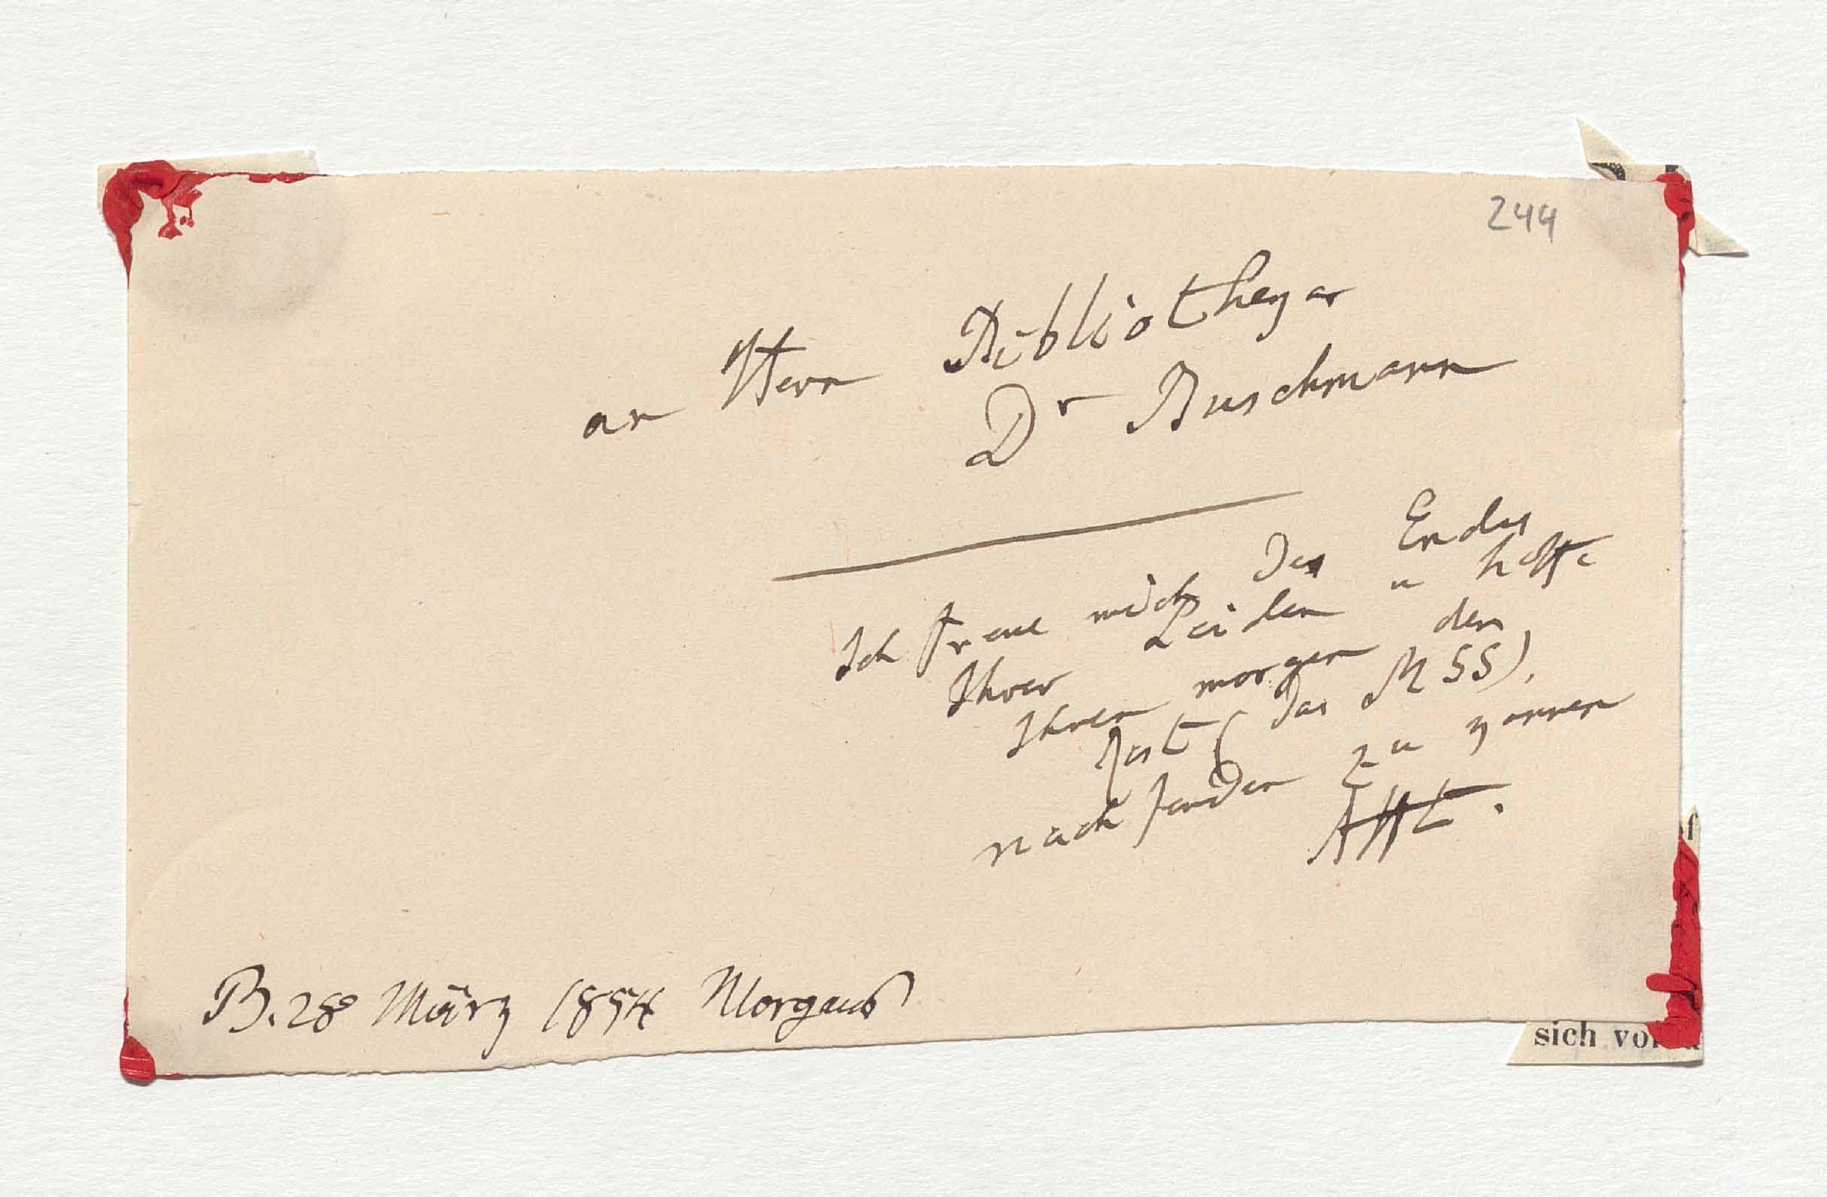 244
an Herrn Bibliothekar
Dr Buschmann
Ich freue mich des Endes
Ihrer Leiden u hoffe
Ihnen morgen den
Rest (das MSS).
nach senden zu können
AHt.
B. 28 März 1854 Morgens
sich vor